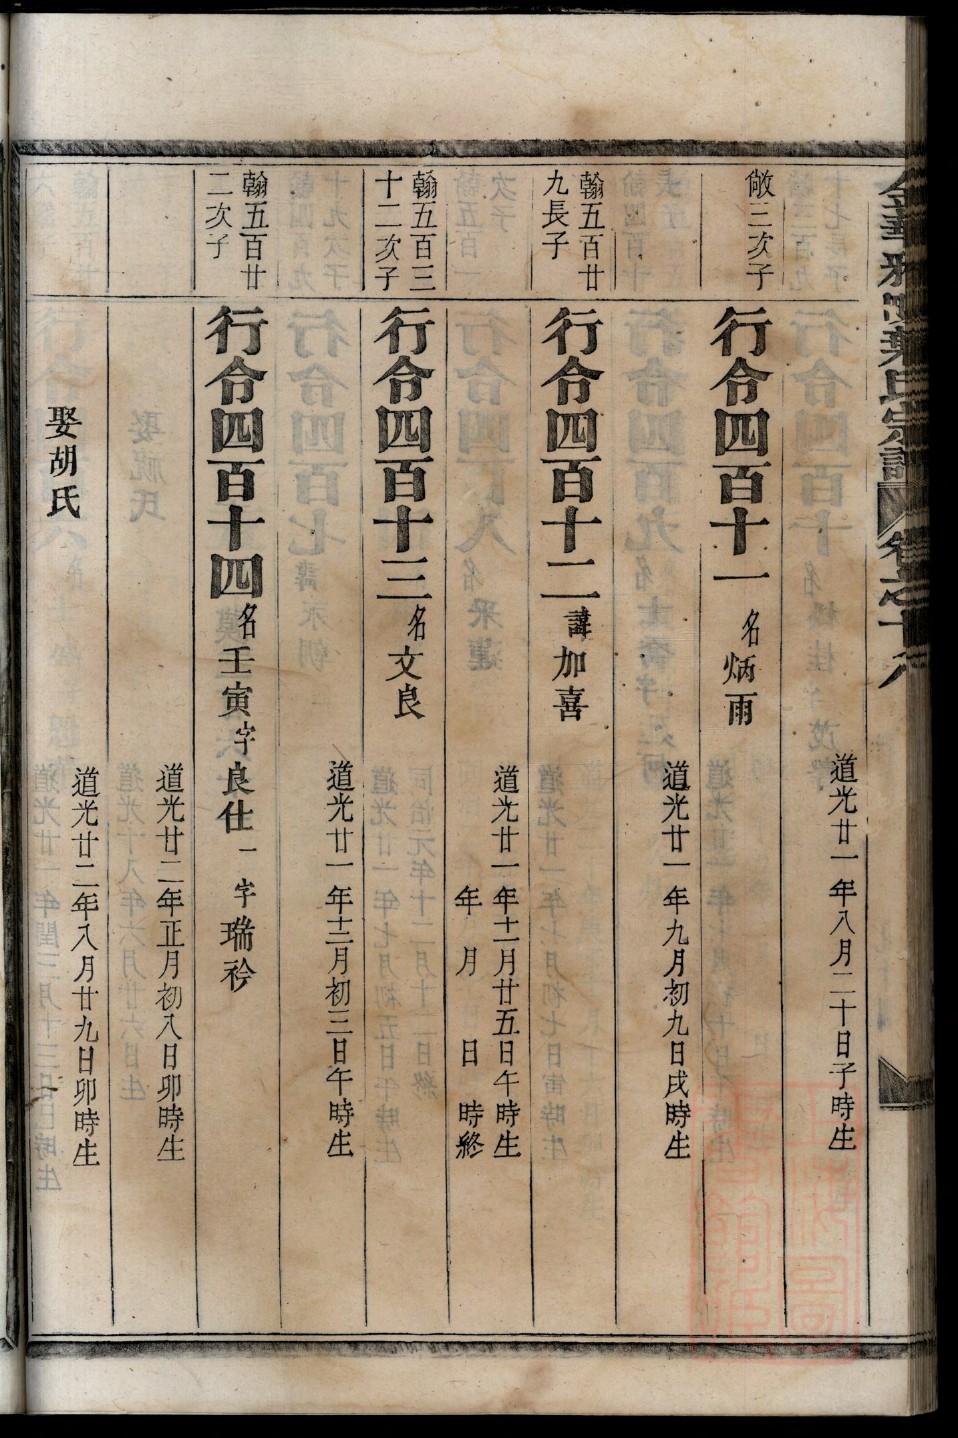 道光廿一年八月二十日子時生
敞三次子
行令四百十一名炳雨
道光廿一年九月初九日戌時生
翰五百廿
九長子
行令四百十二諱加喜
道光廿一年十一月廿五日午時生
年 月 日 時終
翰五百三
十二次子
行令四百十三名文良
道光廿一年十二月初三日午時生
翰五百廿
二次子
行令四百十四名壬寅字良仕一字瑞衿
道光廿二年正月初八日卯時生
娶胡氏
道光廿二年八月廿九日卯時生